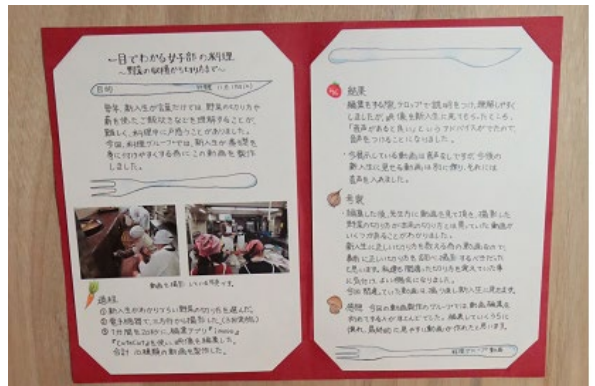 一目でわかる女子部の料理
〜野菜の収穫から切り方まで〜
目的
毎年、新入生が言葉だけでは、野菜の切り方や
を理解することが
難しく、料理中に戸惑うことがありました。
今回、料理グループでは、新入生が基礎を
身に付けやすくする為にこの動画を製作
しました。
動画を撮影している写真です。
過程
①新入生がわかりづらい野菜の切り方を選んだ。
②電子機器で、三方向から撮影した。
合計 種類の動画を製作した。
結果
編集をする際、テロップで説明をつけ、理解しやすく
しましたが、映像を新入生に見てもらったところ、
「音声があると良い」というアドバイスがでたので、
音声をつけることになりました。
・今展示している動画は音声なしですが、今後の
新入生に見せる動画は別に作り、それには
音声を入れました。
考察
・編集した後、先生方に動画を見て頂き、撮影した
野菜の切り方が本来の切り方とは異っていた動画が
いくつかあることがわかりました。
新入生に正しい切り方を教える為の動画なので、
事前に正しい切り方を調べ撮影するべきだった
と思います。私達も間違った切り方を覚えていた事
に気付け、よい機会になりました。
今回間違っていた動画は、撮り直し新入生に見せます。
感想 今回の動画製作のグループでは、動画編集を
初めてする人がほとんどでした。編集していくうちに
慣れ、最終的に見やすい動画が作れたと思います。
料理グループ動画